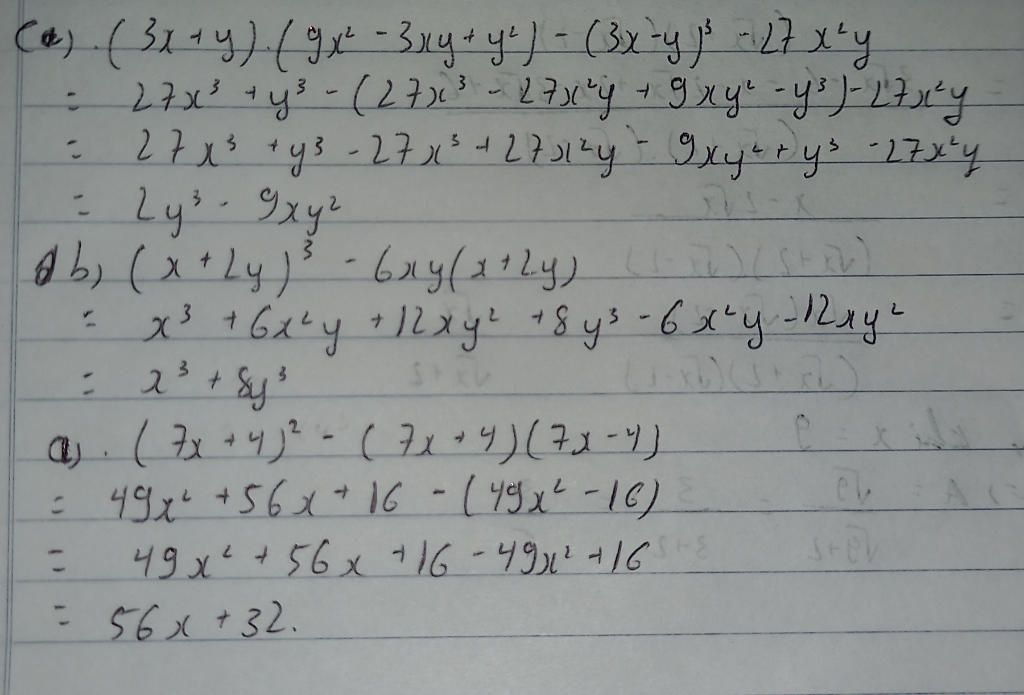 c). (3x + y).(9x² - 3xy + y²) - (3x - y)³ - 27x²y
= 27x³ + y³ - (27x³ - 27x²y + 9xy² - y³) - 27x²y
= 27x³ + y³ - 27x³ + 27x²y - 9xy² + y³ - 27x²y
= 2y³ - 9xy²
b) (x + 2y)³ - 6xy(x + 2y)
= x³ + 6x²y + 12xy² + 8y³ - 6x²y - 12xy²
= x³ + 8y³
a). (7x + 4)² - (7x + 4)(7x - 4)
= 49x² + 56x + 16 - (49x² - 16)
= 49x² + 56x + 16 - 49x² + 16
= 56x + 32.